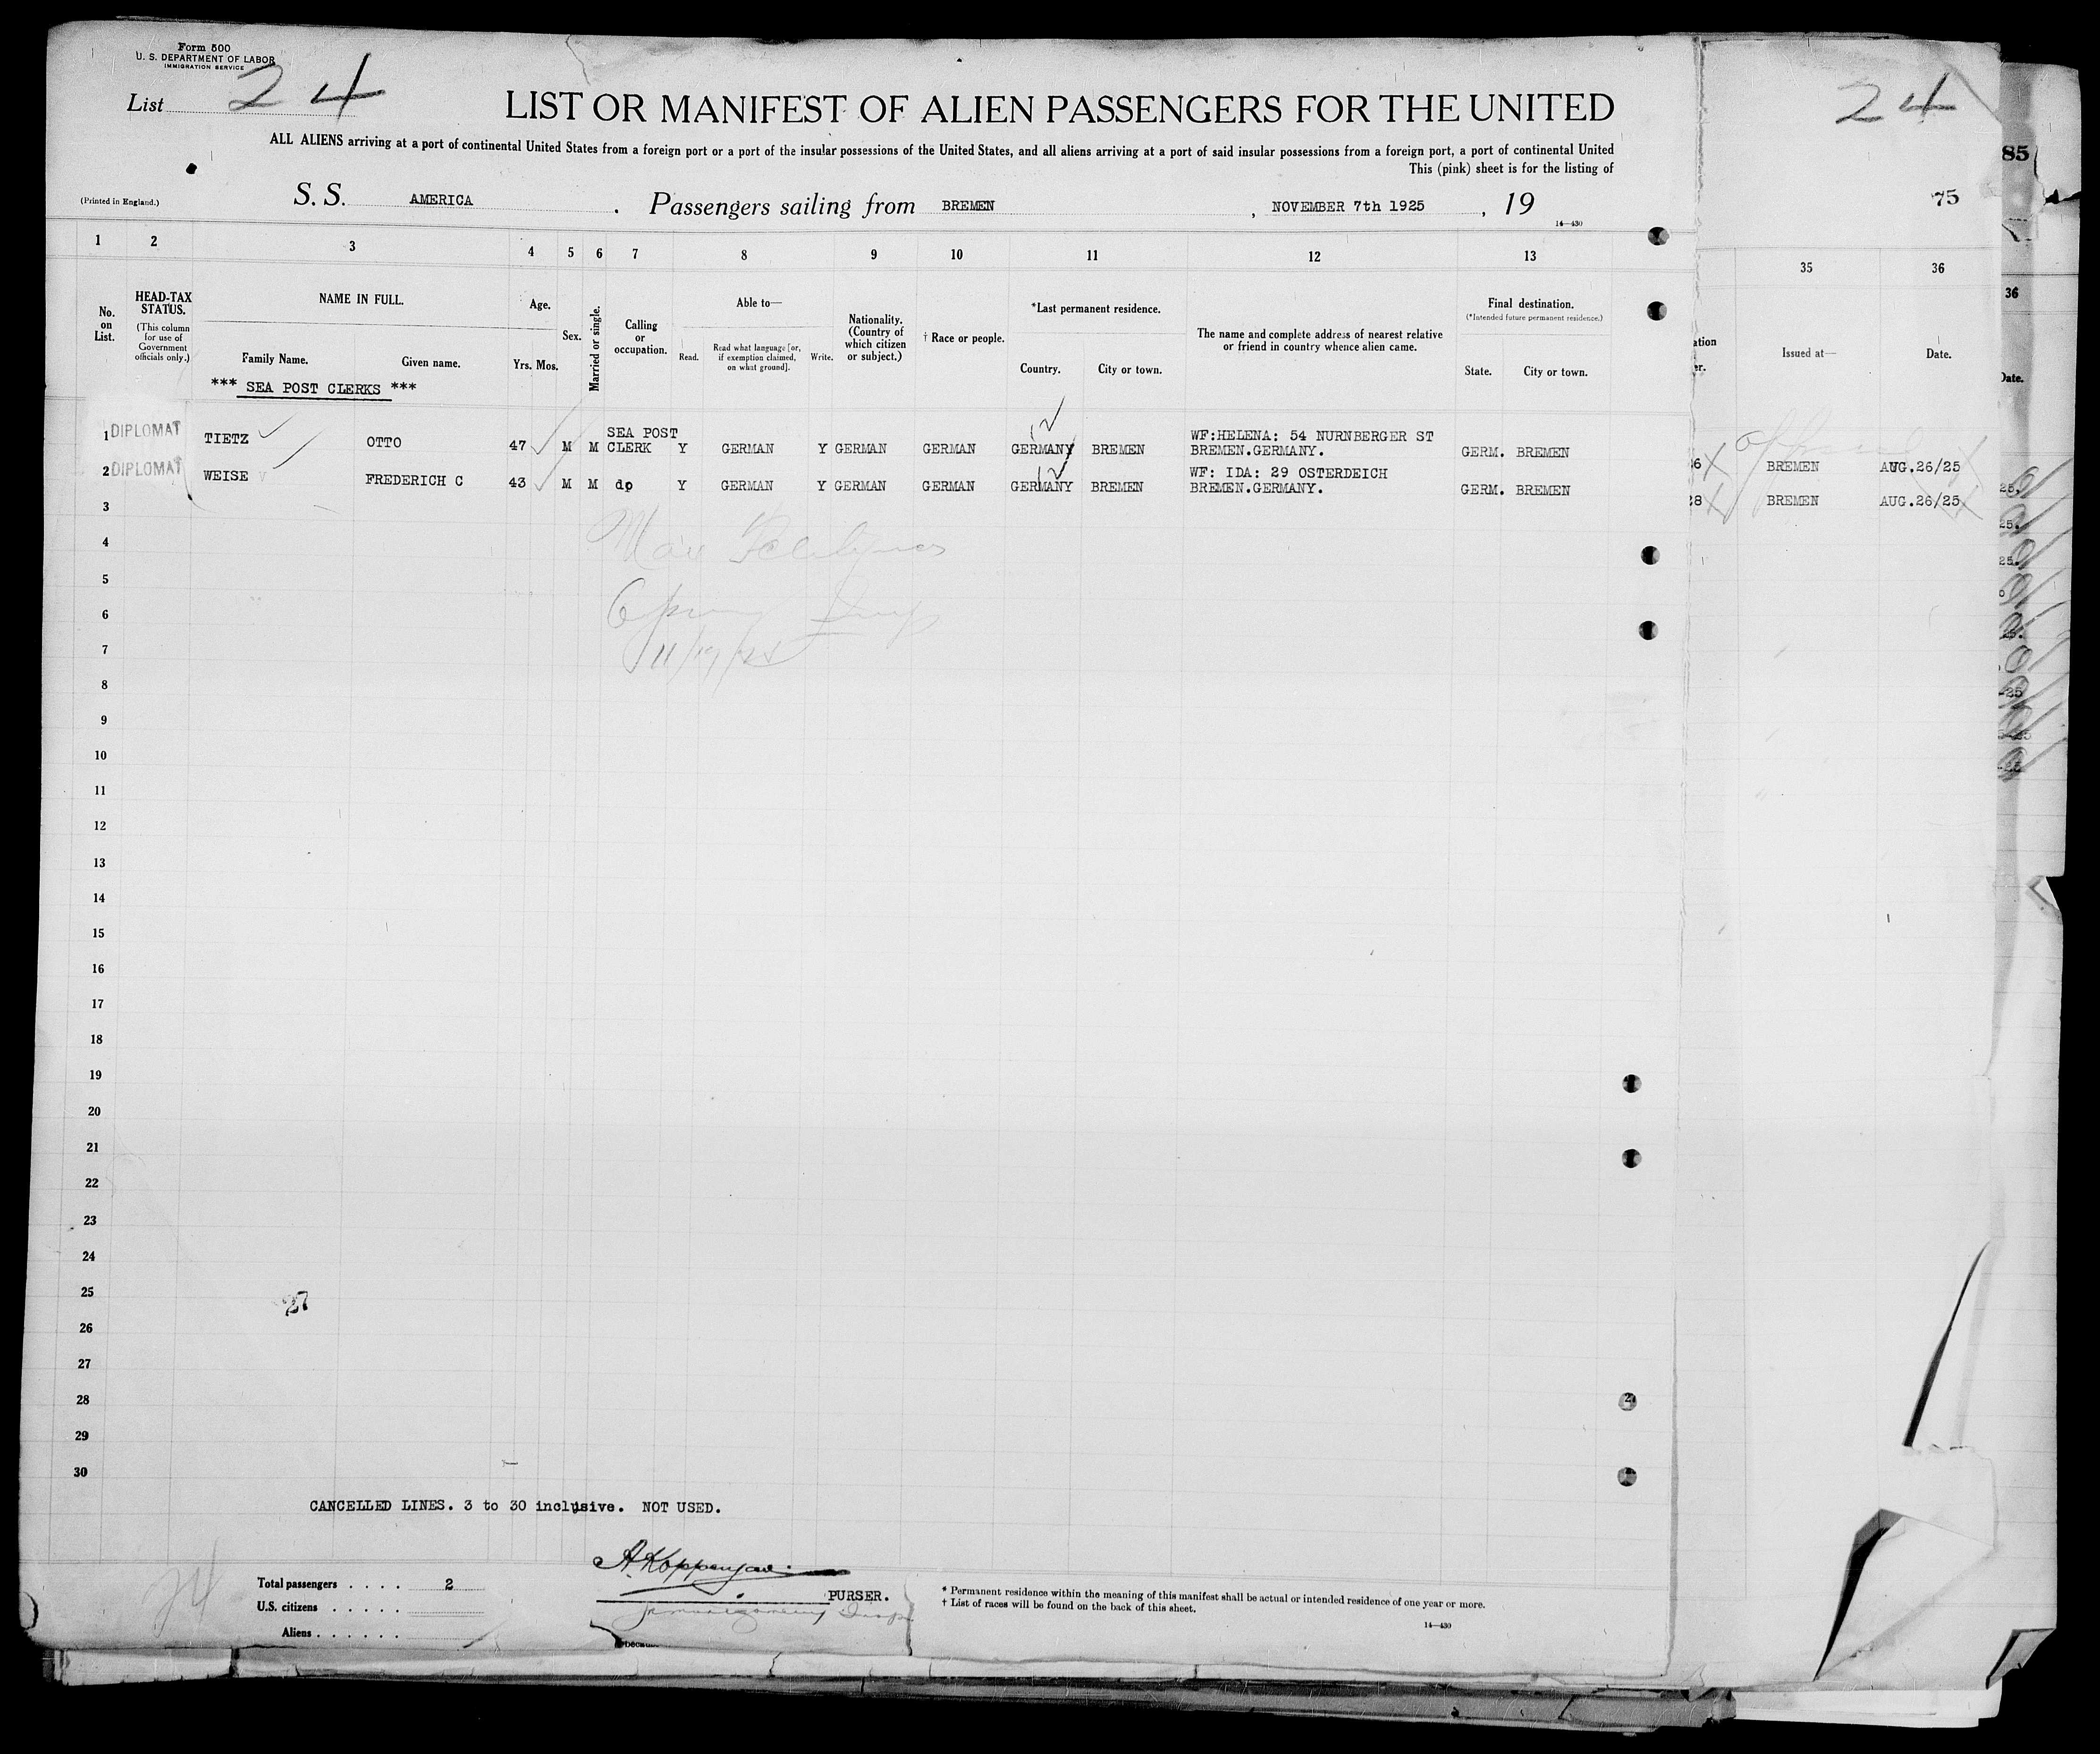 Form 500
U. S. DEPARTMENT OF LABOR
IMMIGRATION SERVICE
List 24
LIST OR MANIFEST OF ALIEN PASSENGERS FOR THE UNITED
ALL ALIENS arriving at a port of continental United States from a foreign port or a port of the insular possessions of the United States, and all aliens arriving at a port of said insular possessions from a foreign port, a port of continental United
This (pink) sheet is for the listing of
(Printed in England.)
S. S. AMERICA . Passengers sailing from BREMEN , NOVEMBER 7th 1925 , 19
14—430
24
85
75
1 2 3 4 5 6 7 8 9 10 11 12 13 35 36
No. on List.
HEAD-TAX STATUS.
(This column for use of Government officials only.)
NAME IN FULL.
Family Name. Given name.
Age.
Yrs. Mos.
Sex.
Married or single.
Calling or occupation.
Able to—
Read. Read what language [or, if exemption claimed, on what ground]. Write.
Nationality. (Country of which citizen or subject.)
† Race or people.
*Last permanent residence.
Country. City or town.
The name and complete address of nearest relative or friend in country whence alien came.
Final destination.
(*Intended future permanent residence.)
State. City or town.
ation
er.
Issued at—
Date.
36
Date.
*** SEA POST CLERKS ***
1 DIPLOMAT TIETZ OTTO 47 M M SEA POST CLERK Y GERMAN Y GERMAN GERMAN GERMANY BREMEN WF:HELENA: 54 NURNBERGER ST BREMEN.GERMANY. GERM. BREMEN 6 BREMEN AUG.26/25
2 DIPLOMAT WEISE FREDERICH C 43 M M do Y GERMAN Y GERMAN GERMAN GERMANY BREMEN WF: IDA: 29 OSTERDEICH BREMEN.GERMANY. GERM. BREMEN 8 BREMEN AUG.26/25
3
4
5
6
7
11/19/25
8
9
10
11
12
13
14
15
16
17
18
19
20
21
22
23
24
25
27
26
27
28
29
30
CANCELLED LINES. 3 to 30 inclusive. NOT USED.
24
Total passengers . . . . 2
U.S. citizens . . . . .
Aliens . . . . . .
PURSER.
* Permanent residence within the meaning of this manifest shall be actual or intended residence of one year or more.
† List of races will be found on the back of this sheet.
14—430